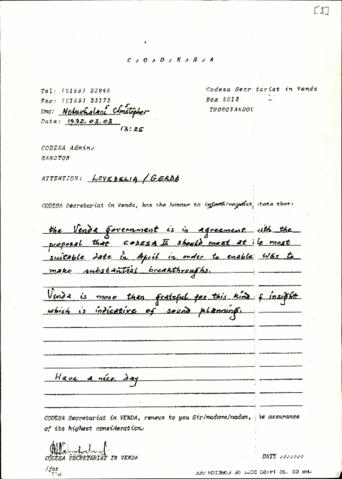 [1]
C , O , D , E , S , A
Tel: (0159) 22945
Fax: (0159) 23172
Enq: Netuvhalani Christopher
Date: 1992.03.03
13:25
Codesa Secretariat in Venda
Box 5018
THOHOYANDOU
CODESA Admin.
SANDTON
ATTENTION: LOVEDELIA / GERDA
CODESA Secretariat in Venda, has the honour to inform/request, state that:
The Venda government is in agreement with the
proposal that CODESA II should meet at the most
suitable date in April in order to enable WGs to
make substantial breakthroughs.
Venda is more than grateful for this kind of insight
which is indicative of sound planning.
Have a nice day
CODESA Secretariat in VENDA, renews to you Sir/madame/madam, the assurance
of its highest consideration.
CODESA SECRETARIAT IN VENDA
DATE